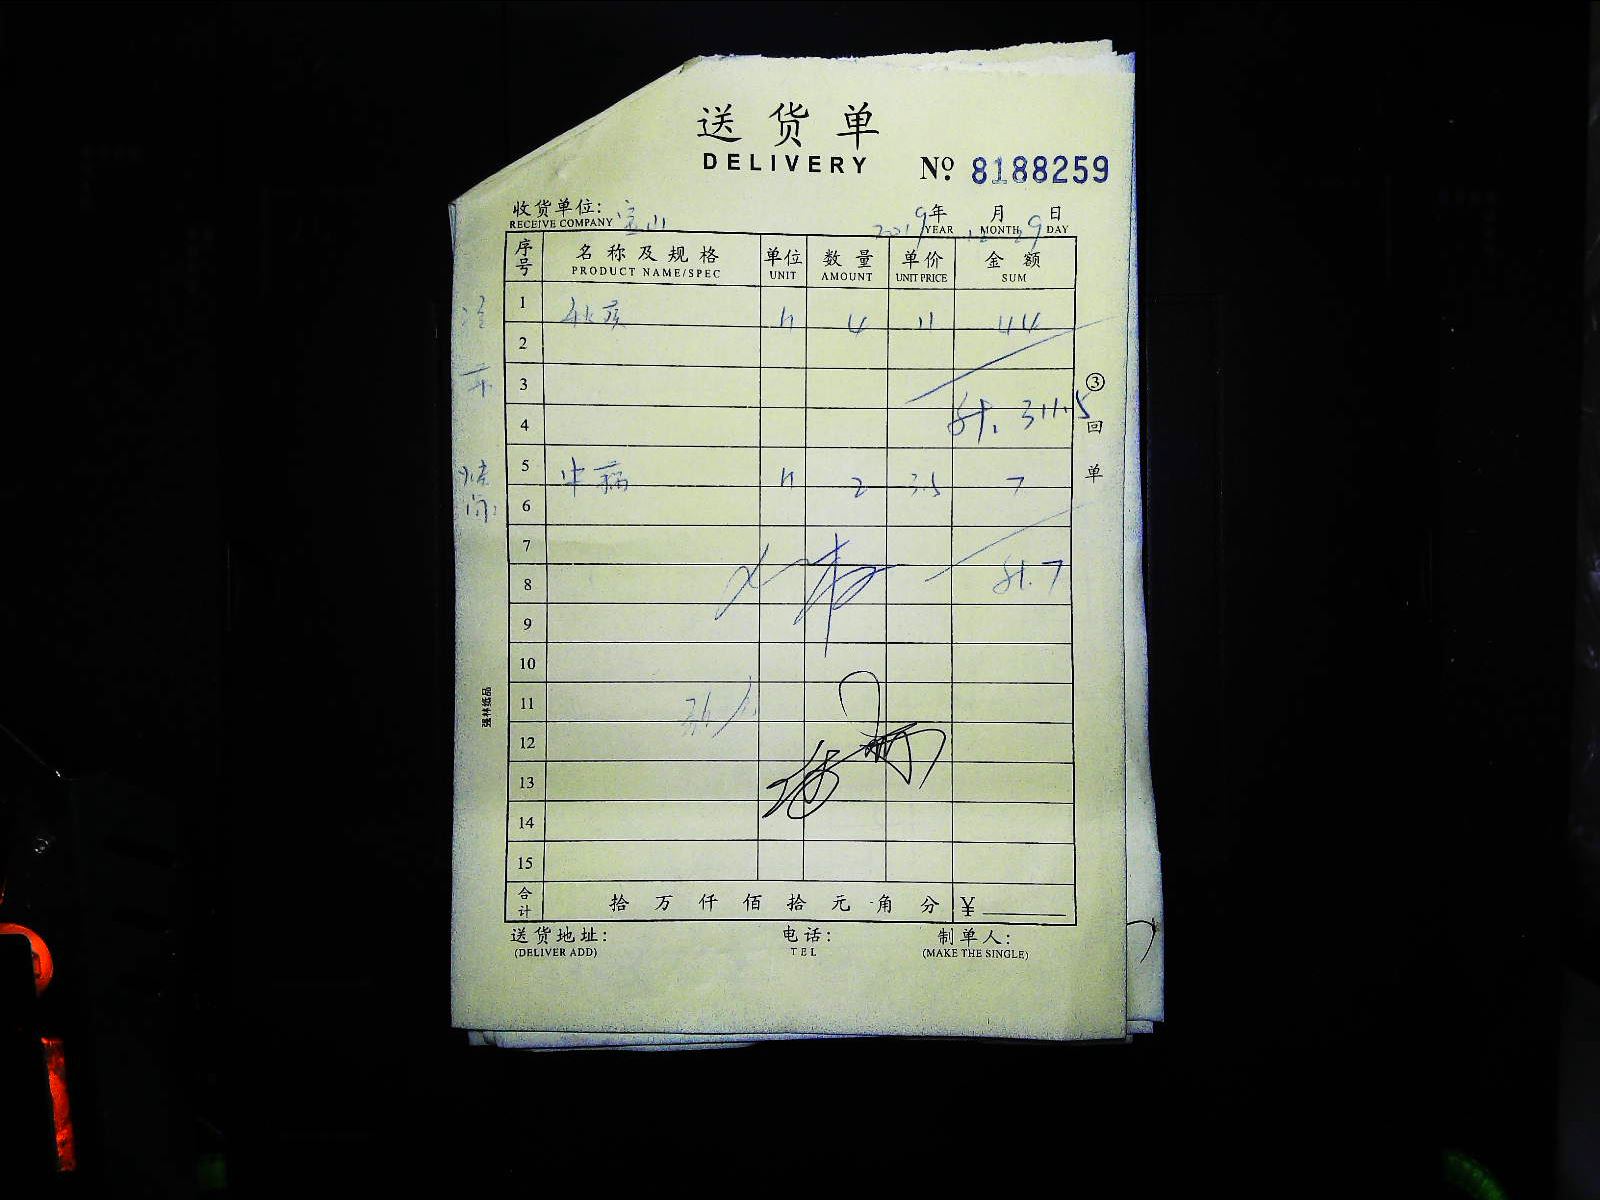 送货单
DELIVERY
№ 8188259
收货单位: 宝山 2019年 12月 29日
RECEIVE COMPANY YEAR MONTH DAY
序号 名称及规格 单位 数量 单价 金额
PRODUCT NAME/SPEC UNIT AMOUNT UNIT PRICE SUM
1 4 11 44
2
3
4 计. 311.5
5 2 3.5 7
6
7
8 计.7
9
10
11
12
13
14
15
合计 拾 万 仟 佰 拾 元 角 分 ¥
送货地址: 电话: 制单人:
(DELIVER ADD) TEL (MAKE THE SINGLE)
③回单
强林纸品